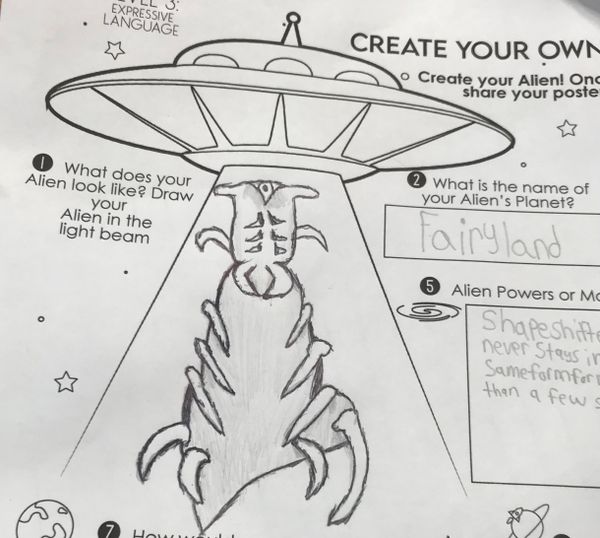 EXPRESSIVE
LANGUAGE
CREATE YOUR OWN
Create your Alien!
share your
1 What does your
Alien look like? Draw
your
Alien in the
light beam
2 What is the name of
your Alien's Planet?
Fairyland
5 Alien Powers or
never Stays
than a few
7 How